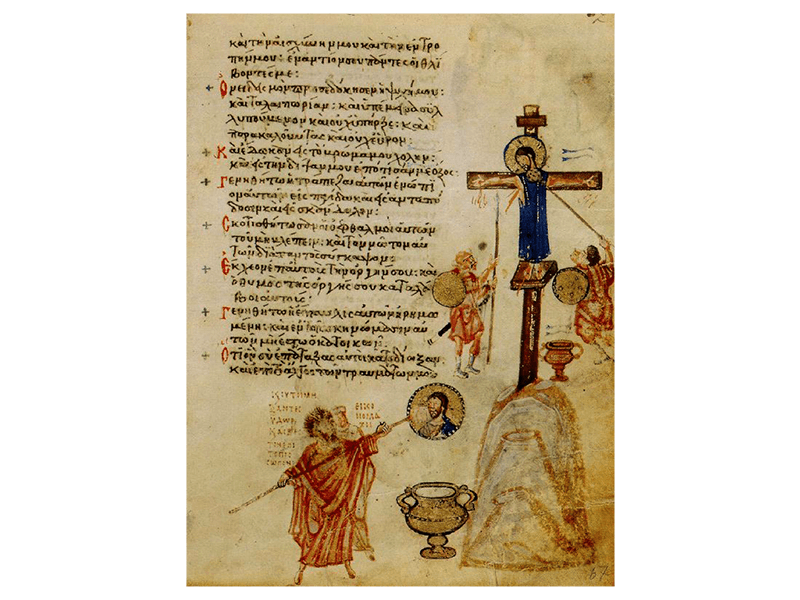 καὶ τὴν αἰσχύνην μου καὶ τὴν ἐντρο
πήν μου: ἐναντίον σου πάντες οἱ θλί
βοντές με:
Ὀνειδισμὸν προσεδόκησεν ἡ ψυχή μου:
καὶ ταλαιπωρίαν: καὶ ὑπέμεινα συλ
λυπούμενον καὶ οὐχ ὑπῆρξε: καὶ
παρακαλοῦντας καὶ οὐχ εὗρον:
Καὶ ἔδωκαν εἰς τὸ βρῶμά μου χολήν:
καὶ εἰς τὴν δίψαν μου ἐπότισάν με ὄξος
Γενηθήτω ἡ τράπεζα αὐτῶν ἐνώπι
ον αὐτῶν εἰς παγίδα καὶ εἰς ἀνταπό
δοσιν καὶ εἰς σκάνδαλον:
Σκοτισθήτωσαν οἱ ὀφθαλμοὶ αὐτῶν
τοῦ μὴ βλέπειν: καὶ τὸν νῶτον αὐ
τῶν διὰ παντὸς σύγκαμψον:
Ἔκχεον ἐπ αὐτοὺς τὴν ὀργήν σου: καὶ
ὁ θυμὸς τῆς ὀργῆς σου καταλά
βοι αὐτούς:
Γενηθήτω ἡ ἔπαυλις αὐτῶν ἠρημω
μένη: καὶ ἐν τοῖς σκηνώμασιν αὐ
τῶν μὴ ἔστω ὁ κατοικῶν:
Ὅτι ὃν σὺ ἐπάταξας αὐτοὶ κατεδίωξαν
καὶ ἐπὶ τὸ ἄλγος τῶν τραυμάτων μου
67